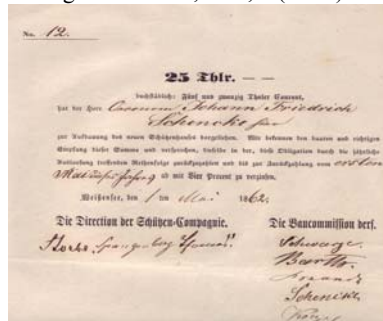 No. 12.
25 Thlr. — —
buchstäblich: Fünf und zwanzig Thaler Courant,
hat der Herr Oeconom Johann Friedrich
Schencke hier
zur Aufbauung des neuen Schützenhauses vorgeliehen. Wir bekennen den baaren und richtigen
Empfang dieser Summe und versprechen, dieselbe in der, diese Obligation durch die jährliche
Ausloosung treffenden Reihenfolge zurückzuzahlen und bis zur Zurückzahlung vom ersten
Mai dieses Jahres ab mit Vier Procent zu verzinsen.
Weißensee, den 1 ten Mai 1862.
Die Direction der Schützen-Compagnie.
Die Baucommission ders.
Spangenberg
Schwarze
Barth
Schenicke